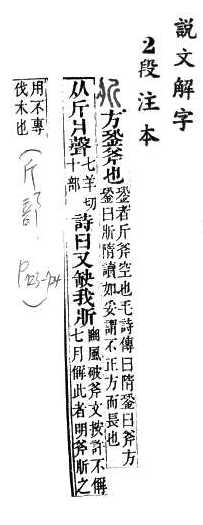 說文解字
2段注本
斨 方銎斧也 銎者斤斧空也毛詩傳曰隋銎曰斧方
銎曰斨隋讀如妥謂不正方而長也
从斤爿聲 七羊切
十部
詩曰又缺我斨 豳風破斧文按許不偁
七月偁此者明斧斨之
用不專
伐木也
(斤
P723-724)